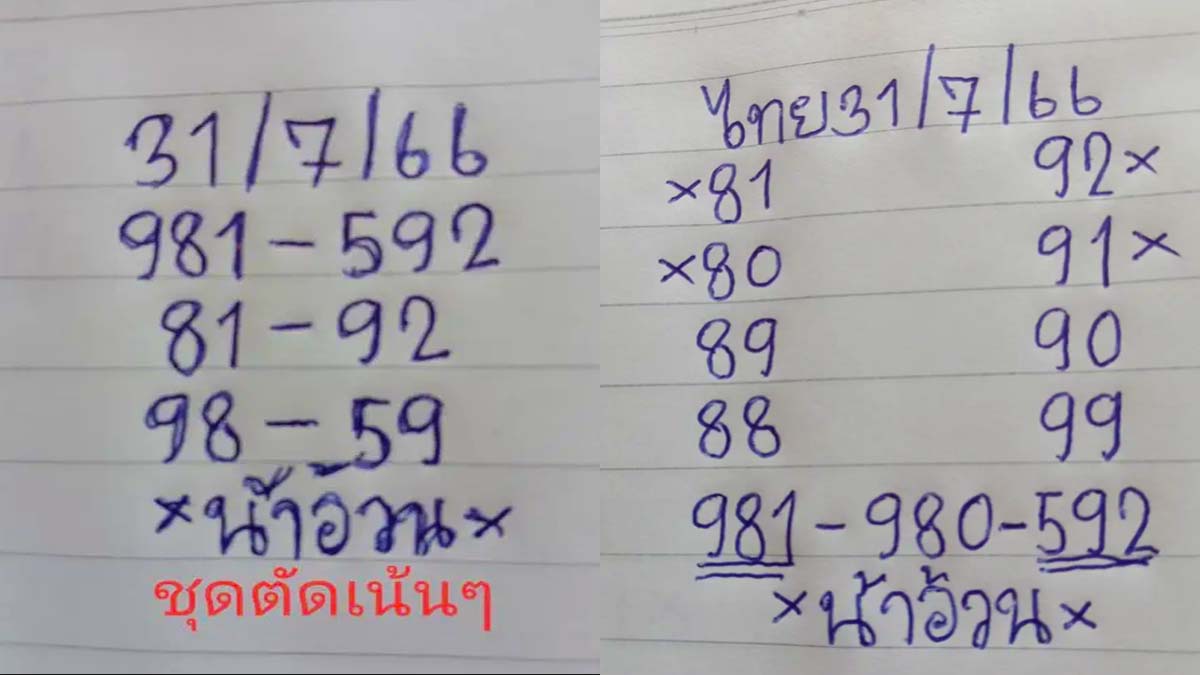 31/7/66
981-592
81-92
98-59
×น้าอ้วน×
ชุดตัดเน้นๆ
ไทย31/7/66
×81 92×
×80 91×
89 90
88 99
981-980-592
×น้าอ้วน×